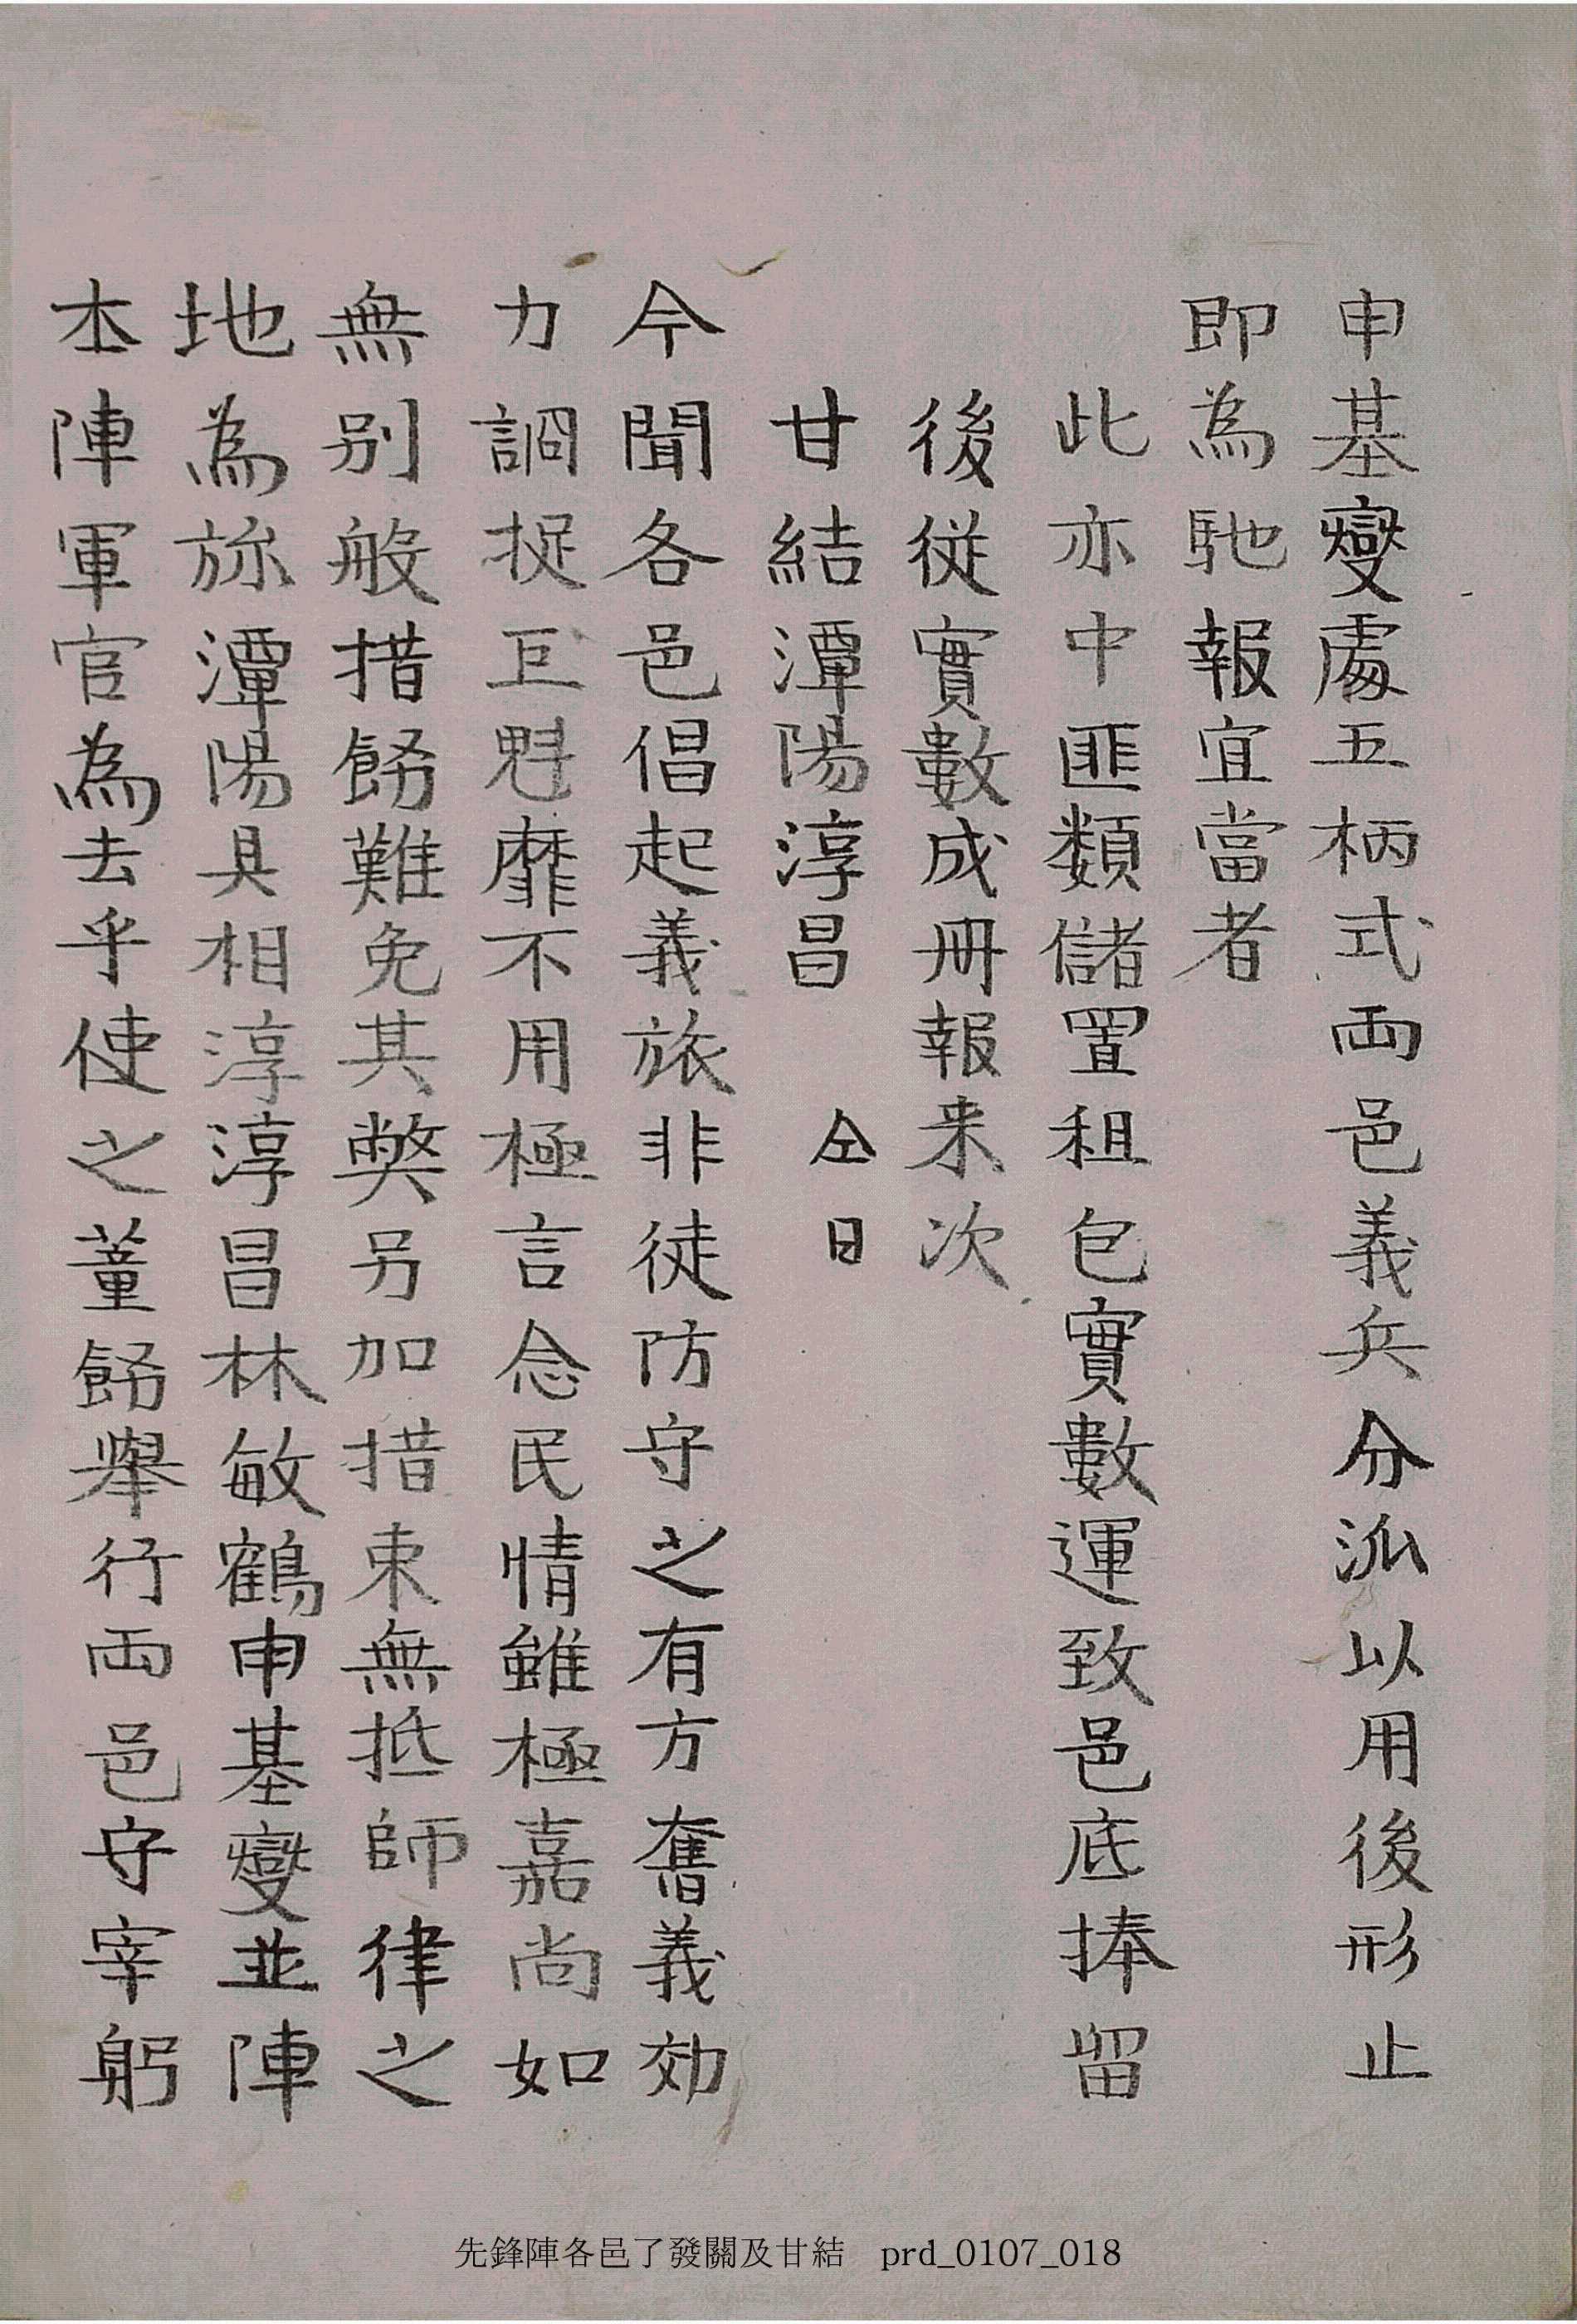 申基燮處五柄式兩邑義兵分派以用後形止
即為馳報宜當者
此亦中匪類儲置租包實數運致邑底捧留
後從實數成冊報来次
甘結潭陽淳昌 仝日
今聞各邑倡起義旅非徒防守之有方奮義効
力詗捉巨魁靡不用極言念民情雖極嘉尚如
無別般措餙難免其獘另加措束無抵師律之
地為旀潭陽具相淳淳昌林敏鶴申基燮並陣
本陣軍官為去乎使之董餙舉行兩邑守宰躬
先鋒陣各邑了發關及甘結 prd_0107_018